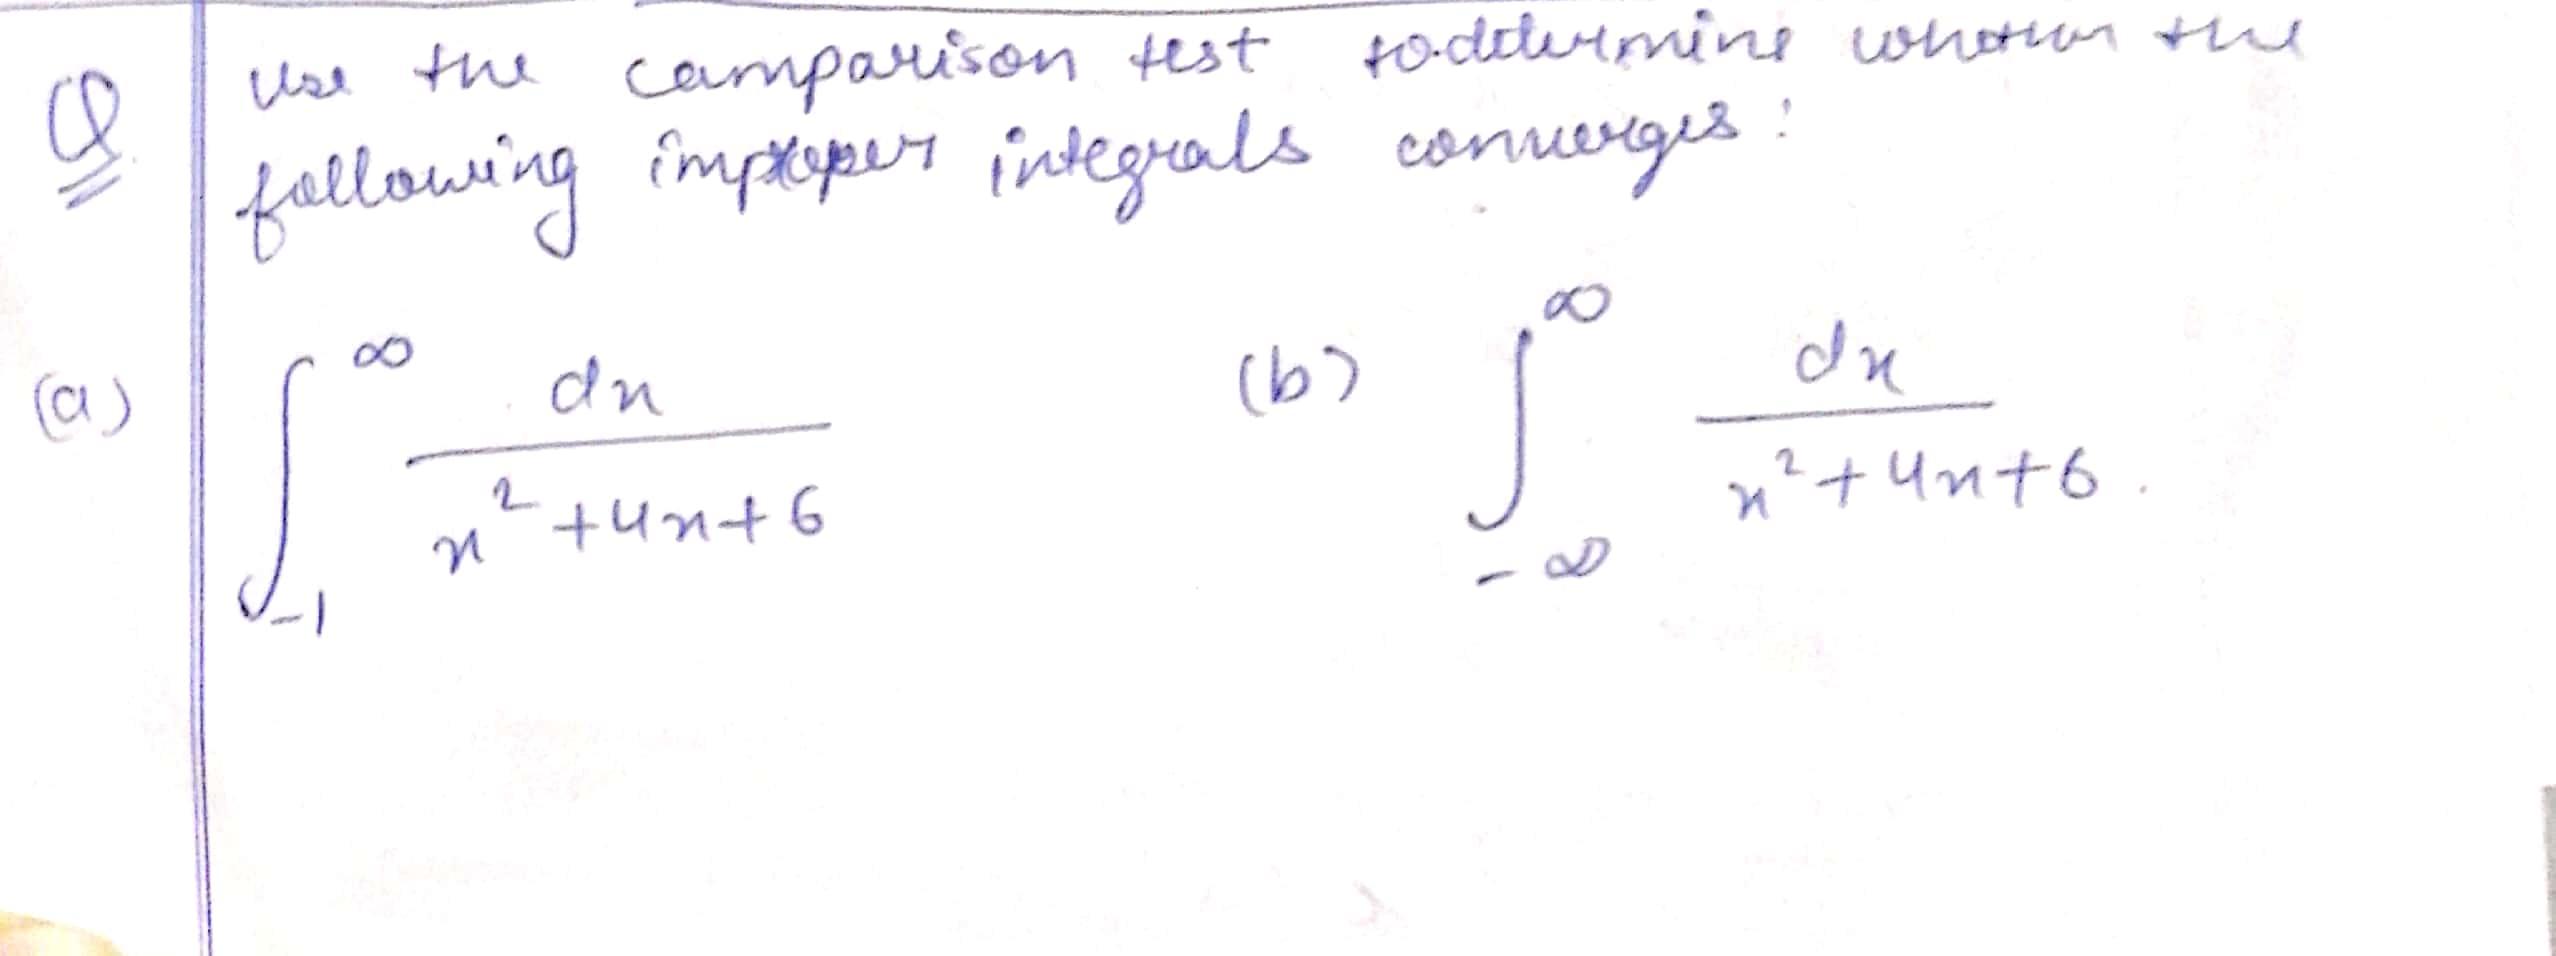 Q Use the camparison test to determine whether the
following improper integrals converges:
(a) ∫_{-1}^{∞} dx / (x² + 4x + 6) (b) ∫_{-∞}^{∞} dx / (x² + 4x + 6).